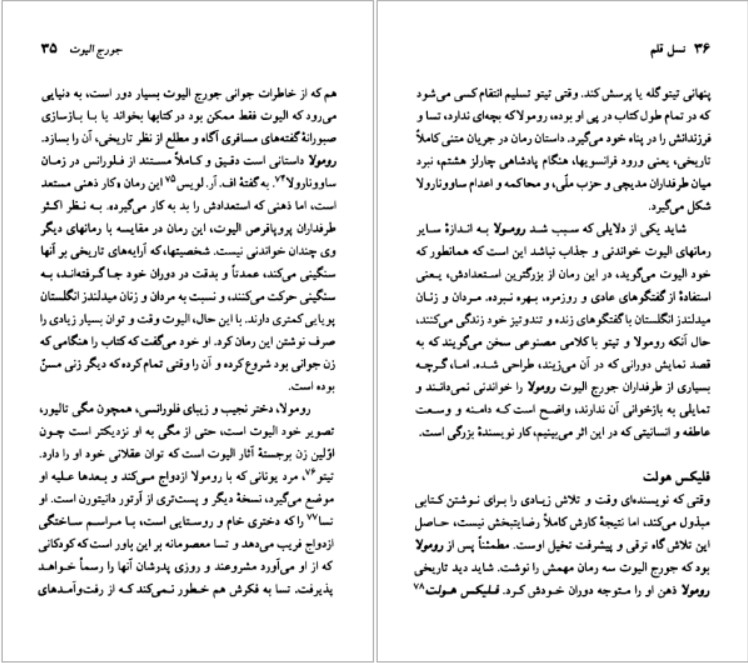 جورج الیوت ۳۵
هم که از خاطرات جوانی جورج الیوت بسیار دور است، به دنیایی
می‌رود که الیوت فقط ممکن بود در کتابها بخواند یا با بازسازی
صبورانهٔ گفته‌های مسافری آگاه و مطلع از نظر تاریخی، آن را بسازد.
رومولا داستانی است دقیق و کاملاً مستند از فلورانس در زمان
ساوونارولا۷۴. به گفتهٔ اف. آر. لویس۷۵ این رمان «کار ذهنی مستعد
است، اما ذهنی که استعدادش را بد به کار می‌گیرد». به نظر اکثر
طرفداران پروپاقرص الیوت، این رمان در مقایسه با رمانهای دیگر
وی چندان خواندنی نیست. شخصیتها، که آرایه‌های تاریخی بر آنها
سنگینی می‌کند، عمدتاً و بدقت در دوران خود جا گرفته‌اند، به
سنگینی حرکت می‌کنند، و نسبت به مردان و زنان میدلندز انگلستان
پویایی کمتری دارند. با این حال، الیوت وقت و توان بسیار زیادی را
صرف نوشتن این رمان کرد. او خود می‌گفت که کتاب را هنگامی که
زن جوانی بود شروع کرده و آن را وقتی تمام کرده که دیگر زنی مسنّ
بوده است.
رومولا، دختر نجیب و زیبای فلورانسی، همچون مگی تالیور،
تصویر خود الیوت است، حتی از مگی به او نزدیکتر است چون
اوّلین زن برجستهٔ آثار الیوت است که توان عقلانی خود او را دارد.
تیتو۷۶، مرد یونانی که با رومولا ازدواج می‌کند و بعدها علیه او
موضع می‌گیرد، نسخهٔ دیگر و پست‌تری از آرتور دانیتورن است. او
تسا۷۷ را که دختری خام و روستایی است، با مراسم ساختگی
ازدواج فریب می‌دهد و تسا معصومانه بر این باور است که کودکانی
که از او می‌آورد مشروعند و روزی پدرشان آنها را رسماً خواهد
پذیرفت. تسا به فکرش هم خطور نمی‌کند که از رفت‌وآمدهای
۳۶ نسل قلم
پنهانی تیتو گله یا پرسش کند. وقتی تیتو تسلیم انتقام کسی می‌شود
که در تمام طول کتاب در پی او بوده، رومولا که بچه‌ای ندارد، تسا و
فرزندانش را در پناه خود می‌گیرد. داستان رمان در جریان متنی کاملاً
تاریخی، یعنی ورود فرانسویها، هنگام پادشاهی چارلز هشتم، نبرد
میان طرفداران مدیچی و حزب ملّی، و محاکمه و اعدام ساوونارولا
شکل می‌گیرد.
شاید یکی از دلایلی که سبب شد رومولا به اندازهٔ سایر
رمانهای الیوت خواندنی و جذاب نباشد این است که همانطور که
خود الیوت می‌گوید، در این رمان از بزرگترین استعدادش، یعنی
استفادهٔ از گفتگوهای عادی و روزمره، بهره نبرده. مردان و زنان
میدلندز انگلستان با گفتگوهای زنده و تندوتیز خود زندگی می‌کنند،
حال آنکه رومولا و تیتو با کلامی مصنوعی سخن می‌گویند که به
قصد نمایش دورانی که در آن می‌زیند، طراحی شده. اما، گرچه
بسیاری از طرفداران جورج الیوت رومولا را خواندنی نمی‌دانند و
تمایلی به بازخوانی آن ندارند، واضح است که دامنه و وسعت
عاطفه و انسانیتی که در این اثر می‌بینیم، کار نویسندهٔ بزرگی است.
فلیکس هولت
وقتی که نویسنده‌ای وقت و تلاش زیادی را برای نوشتن کتابی
مبذول می‌کند، اما نتیجهٔ کارش کاملاً رضایتبخش نیست، حاصل
این تلاش گاه ترقی و پیشرفت تخیل اوست. مطمئناً پس از رومولا
بود که جورج الیوت سه رمان مهمش را نوشت. شاید دید تاریخی
رومولا ذهن او را متوجه دوران خودش کرد. فلیکس هولت۷۸